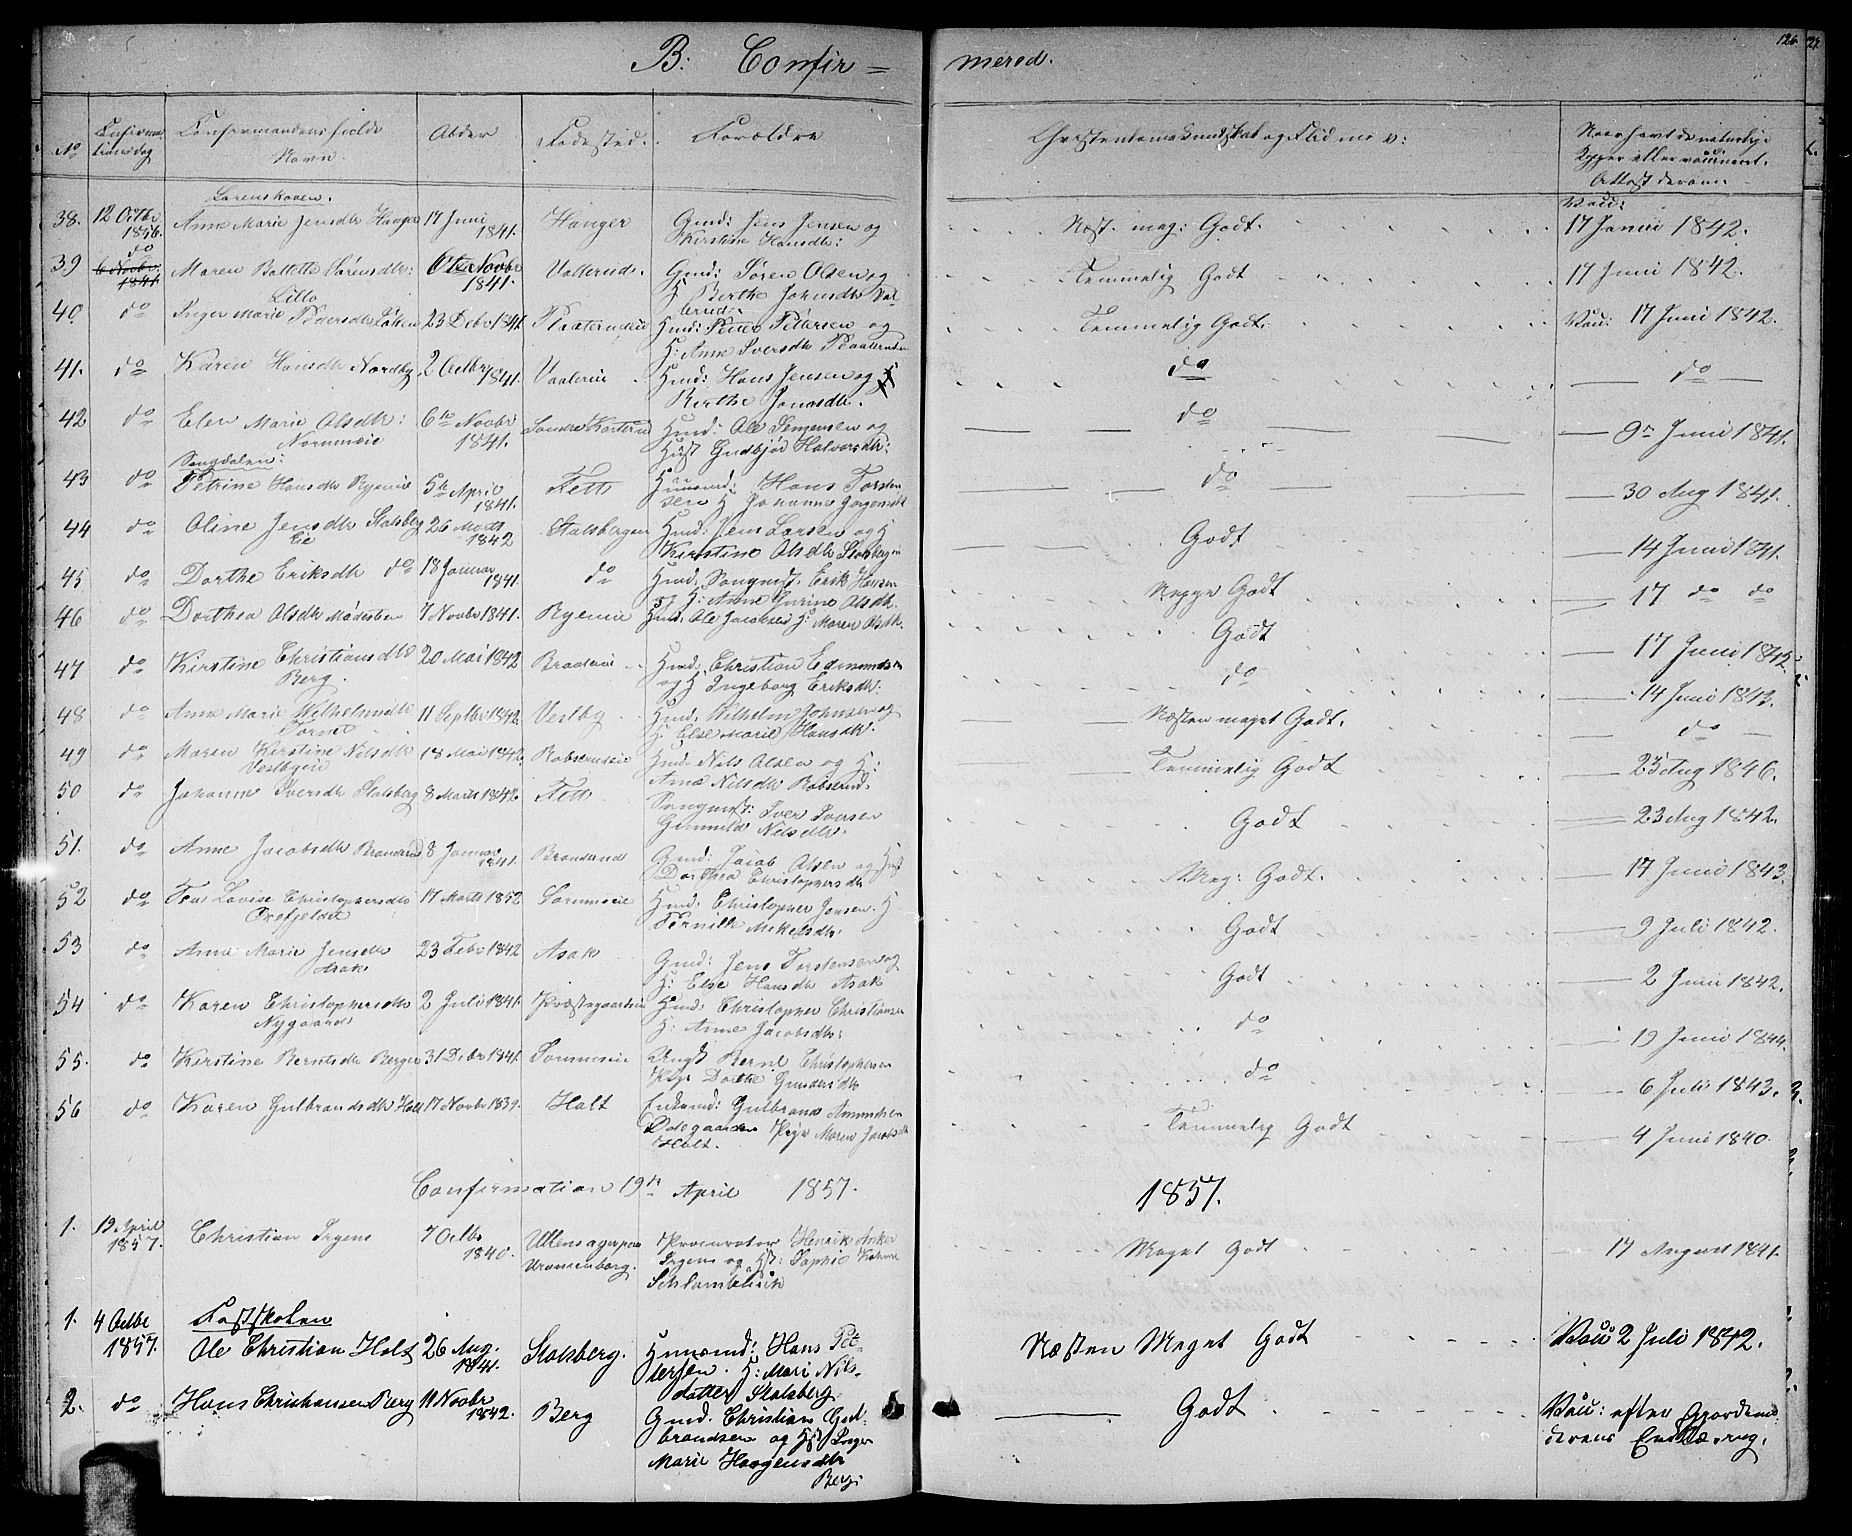 126.
B: Confir =
mered.
No
Confirma
tionsdag
Confirmandens fulde
Navn.
Alder
Fødested.
Forældre
Christendoms Kundskab og Flid m v:
Naar havt de naturlige
Kopper eller vaccineret.
Attest derom
Lørenskoven.
38. 12 Octbr 1856. Anne Marie Jensdtr Hauger 17 Juni 1841. Hauger Gmd: Jens Jensen og
Kirstine Hansdtr: Næst. meg: Godt. Vac: 17 Juni 1842.
39 do 6 Novbr. 1841 Maren Bollette Sørensdtr: 6te Novbr 1841. Vallerud. Gmd: Søren Olsen og
H Berthe Johnsdtr Val-
lerud. Temmelig Godt 17 Juni 1842.
40. do Inger Marie Pedersdtr Løken 23 Debr 1841. Gmd: Petter Petersen og
H: Anne Iversdtr Temmelig Godt. Vac: 17 Juni 1842.
41. do Karen Hansdtr Nordby 2 Octbr 1841. Vaalerud Hmd: Hans Jensen og
Berthe Jonasdtr. do do
42 do Elen Marie Olsdtr: 6te Novbr 1841. Søndre Kosterud Hmd: Ole
og
Hust Gudbjør Halvorsdtr: do 9 Juni 1841.
43 do Petrine Hansdtr Ryeneie 5te April 1841. Fett Huusmd: Hans Torsten
sen H Johanne Jørgensdtr do 30 Aug 1841.
44 do Oline Jensdtr Stalsberg
Eie 26 Marts 1842 Stalsbergeie Hmd: Jens Larsen og H
Kirstine Olsdtr Stalsbergeie Godt 14 Juni 1841.
45 do Dorthe Eriksdtr do 18 Januar 1841. do Hmd. Erik Hansen
og H: Anne Olsdtr. Godt 17 do do
46 do Dorthea Olsdtr 7 Novbr 1841. Ryeneie Hmd. Ole Jacobsen H: Maren Olsdtr. Godt 17 Juni 1842.
47 do Kirstine Christiansdtr
Berg. 20 Mai 1842 Hmd. Christian Edmundsen
og H Ingeborg Eriksdtr. do 14 Juni 1843.
48 do Anne Marie Wilhelmsdtr 11 Septbr 1842. Vestby Hmd. Wilhelm Johnsen og
H. Else Marie Hansdtr. Næsten meget Godt. do
49 do Maren Kirstine Nilsdtr
Vestbyeie 18 Mai 1842. Robsrudeie Hmd Nils Olsen og H:
Anne Nilsdtr Robsrud. Temmelig Godt 25 Aug 1846.
50 do Johanne Iversdtr Stalsberg 8 Marts 1842. Fett Iver Iversen
Gunnild Nilsdtr. Godt 23 Aug 1842.
51. do Anne Jacobsdtr Branderud 8 Januar 1841. Branderud Gmd: Jacob Olsen og Hust
Dorthea Christophersdtr Meg: Godt. 17 Juni 1843.
52 do Lovise Christophersdtr 17 Marts 1852. Hmd: Christopher Jensen. H
Pernille Mikelsdtr Godt 9 Juli 1842.
53 do Anne Marie Jensdtr
Asak 23 Febr 1842 Asak Gmd: Jens Torstensen og
H: Else Hansdtr Asak Godt 2 Juni 1842.
54 do Karen Christophersdtr
Nygaard 2 Juli 1841. Præstegaardseie Hmd: Christopher Christiansen
H: Anne Jacobsdtr: do 19 Juni 1844.
55. do Kirstine Berntsdtr Berger 31 Debr 1841. Ungk Bernt Christophersen
Pige Dorthe Gundersdtr do 6 Juli 1843.
56 do Karen Gulbrandsdtr Holt 17 Novbr 1839. Holt Enkemd: Gulbrand Amundsen
Odegaarden Pige Maren Jacobsdtr
Holt. Temmelig Godt 4 Juni 1840.
Confirmation 19de April 1857.
1857.
1. 19 April 1857. Christian Irgens 7 Octbr 1840. Ullensager
Uranienborg. Procurator Henrik Anker
Irgens og Hst: Sophie
Meget Godt 17 August 1841.
1. 4 Octbr 1857. Fastskolen
Ole Christian Holt 26 Aug. 1841. Stalsberg. Huusmd: Hans Pe-
tersen. H: Mari Nils-
datter Stalsberg Næsten Meget Godt Vac: 2 Juli 1842.
2. do Hans Christiansen Berg 11 Novbr 1842. Berg Gmd. Christian Gul-
brandsen og Hst Inger
Marie Haagensdtr
Berg. Godt Vac: efter Gjordemo
derens Erklæring.